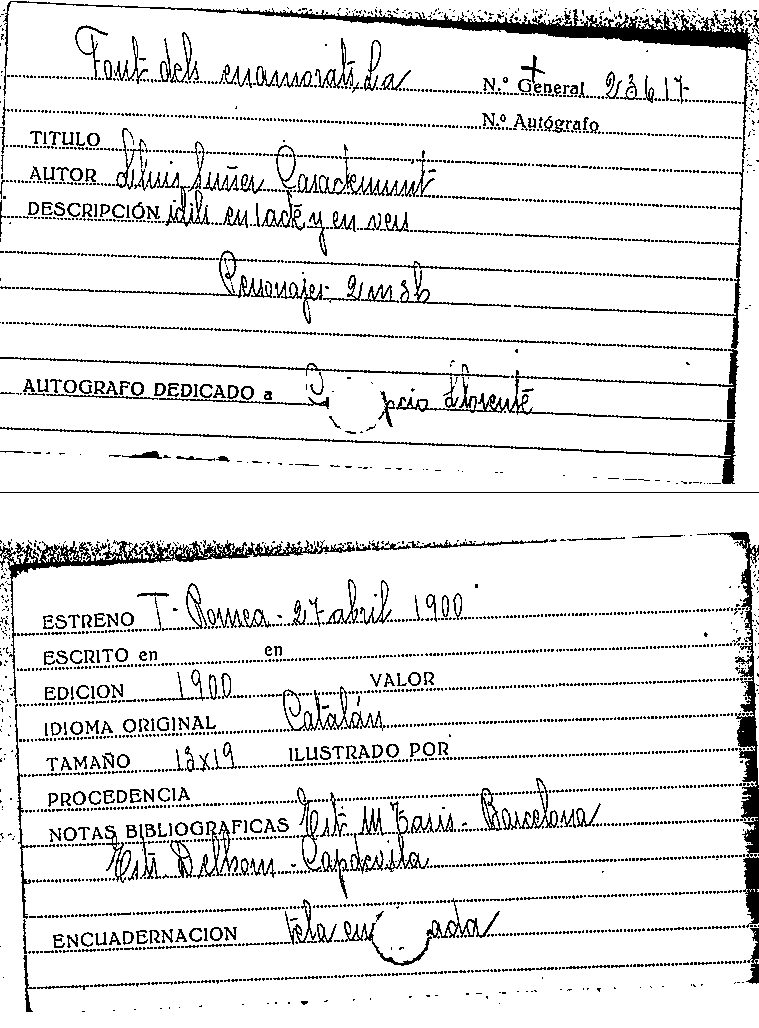 Font dels enamorats, La
N.º General 23617
N.º Autógrafo
TITULO
AUTOR Lluis Suñer Casademunt
DESCRIPCIÓN idili en 1 acte y en vers
Personajes 2 m 3 h
AUTOGRAFO DEDICADO a Llorente
ESTRENO T. Romea - 27 abril 1900
ESCRITO en en
EDICION 1900 VALOR
IDIOMA ORIGINAL Catalán
TAMAÑO 13x19 ILUSTRADO POR
PROCEDENCIA
NOTAS BIBLIOGRAFICAS Est. M Tasis - Barcelona
Delhom - Capdevila
ENCUADERNACION tela